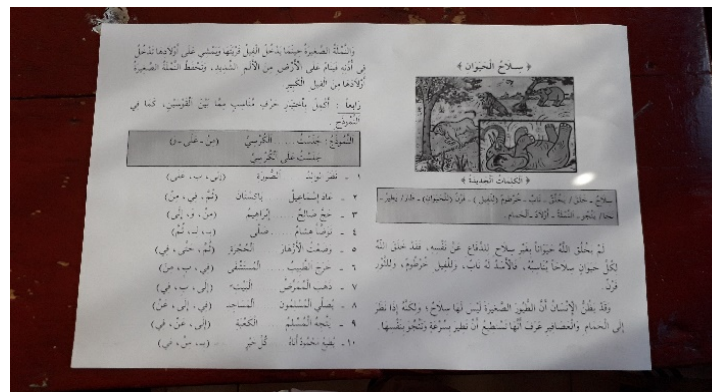 ﴿ سِلاحُ الْحَيَوَانِ ﴾
﴿ الْكَلِمَاتُ الْجَدِيدَةُ ﴾
سِلاحٌ - خَلَقَ / يَخْلُقُ - نَابٌ - خُرْطُومٌ (لِلْفِيلِ) - قَرْنٌ (لِلْحَيَوَانِ) - طَارَ / يَطِيرُ -
نَجَا / يَنْجُو - النَّمْلَةُ - أَوْلَادٌ - الْحَمَامُ.
لَمْ يَخْلُقِ اللَّهُ حَيَوَاناً بِغَيْرِ سِلاحٍ لِلدِّفَاعِ عَنْ نَفْسِهِ، فَقَدْ خَلَقَ اللَّهُ
لِكُلِّ حَيَوَانٍ سِلاحاً يُنَاسِبُهُ، فَالْأَسَدُ لَهُ نَابٌ، وَلِلْفِيلِ خُرْطُومٌ، وَلِلثَّوْرِ
قَرْنٌ.
وَقَدْ يَظُنُّ الْإِنْسَانُ أَنَّ الطُّيُورَ الصَّغِيرَةَ لَيْسَ لَهَا سِلاحٌ؛ وَلَكِنَّهُ إِذَا نَظَرَ
إِلَى الْحَمَامِ وَالْعَصَافِيرِ عَرَفَ أَنَّهَا تَسْتَطِيعُ أَنْ تَطِيرَ بِسُرْعَةٍ وَتَنْجُوَ بِنَفْسِهَا.
وَالنَّمْلَةُ الصَّغِيرَةُ حِينَمَا يَدْخُلُ الْفِيلُ قَرْيَتَهَا وَيَمْشِي عَلَى أَوْلَادِهَا تَدْخُلُ
فِي أُذُنِهِ فَيَنَامُ عَلَى الْأَرْضِ مِنَ الْأَلَمِ الشَّدِيدِ، وَتَحْفَظُ النَّمْلَةُ الصَّغِيرَةُ
أَوْلَادَهَا مِنَ الْفِيلِ الْكَبِيرِ
رَابِعاً : أَكْمِلْ بِاخْتِيَارِ حَرْفٍ مُنَاسِبٍ مِمَّا بَيْنَ الْقَوْسَيْنِ، كَمَا فِي
النَّمُوذَجِ :
النَّمُوذَجُ : جَلَسْتُ ..... الْكُرْسِيِّ (مِنْ - عَلَى - )
جَلَسْتُ عَلَى الْكُرْسِيِّ
١ - نَظَرَ الصُّورَةِ (إِلَى، بِـ، عَلَى)
٢ - عَادَ إِسْمَاعِيلُ بَاكِسْتَانَ (ثُمَّ، فِي، مِنْ)
٣ - حَجَّ صَالِحٌ إِبْرَاهِيمُ (مِنْ، وَ، إِلَى)
٤ - تَوَضَّأَ هِشَامٌ صَلَّى (بِـ، لِـ، ثُمَّ)
٥ - وَضَعْتُ الْأَزْهَارَ الْحُجْرَةِ (ثُمَّ، حَتَّى، فِي)
٦ - خَرَجَ الطَّبِيبُ الْمُسْتَشْفَى (فِي، بِـ، مِنْ)
٧ - ذَهَبَ الْمُمَرِّضُ الْبَيْتِ (إِلَى، بِـ، فِي)
٨ - يُصَلِّي الْمُسْلِمُونَ الْمَسَاجِدِ (فِي، إِلَى، عَنْ)
٩ - يَتَّجِهُ الْمُسْلِمُ الْكَعْبَةِ (إِلَى، عَنْ، فِي)
١٠ - مَحْمُودٌ أَبَاهُ كُلِّ (بِـ، مِنْ، فِي)